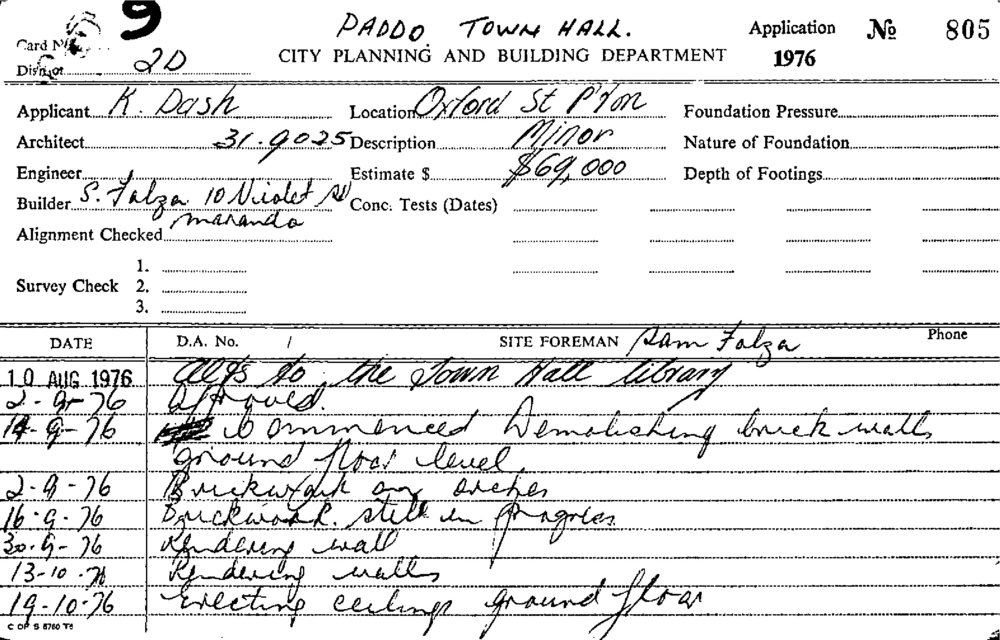 9 PADDO TOWN HALL. Application № 805
Card No.
CITY PLANNING AND BUILDING DEPARTMENT 1976
District 2D
Applicant K. Dash Location Oxford St P'ton Foundation Pressure
Architect 31.9025 Description Minor Nature of Foundation
Engineer Estimate $ $69,000 Depth of Footings
Builder S. Falza 10 Violet St Conc. Tests (Dates)
maranda
Alignment Checked
1.
Survey Check 2.
3.
DATE D.A. No. / SITE FOREMAN Sam Falza Phone
10 AUG 1976 Alts to the Town Hall library
2-9-76 Approved.
14-9-76 Commenced Demolishing brick walls
ground floor level
2-9-76 Brickwork on arches
16-9-76 Brickwork still in progress
30-9-76 Rendering wall
13-10-76 Rendering walls
19-10-76 Erecting ceilings ground floor
C OF S 8760 TS